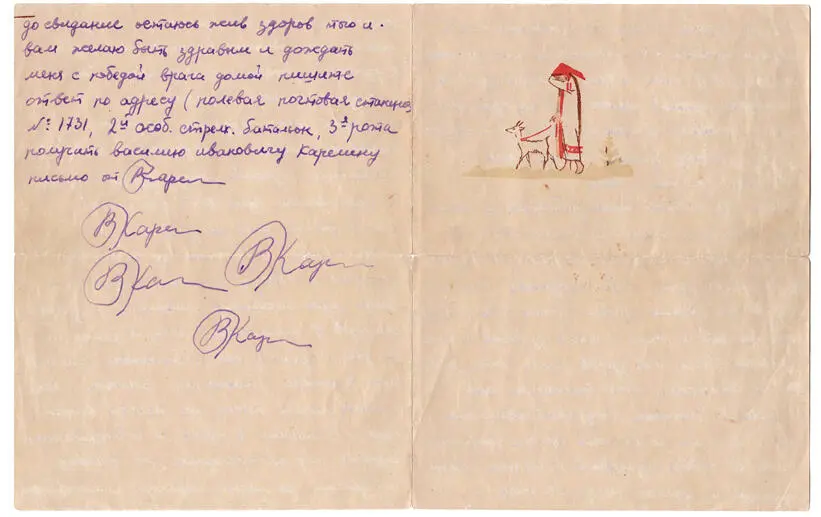 до свидание остаюсь жив здоров того и
вам желаю быть здравым и дождать
меня с победой врага домой пишите
ответ по адресу (полевая почтовая станция
№ 1731, 2й особ. стрелк. батальон, 3я рота
получить василию ивановичу Карелину
письмо от ВКарел
ВКарел
ВКар
ВКар
ВКар